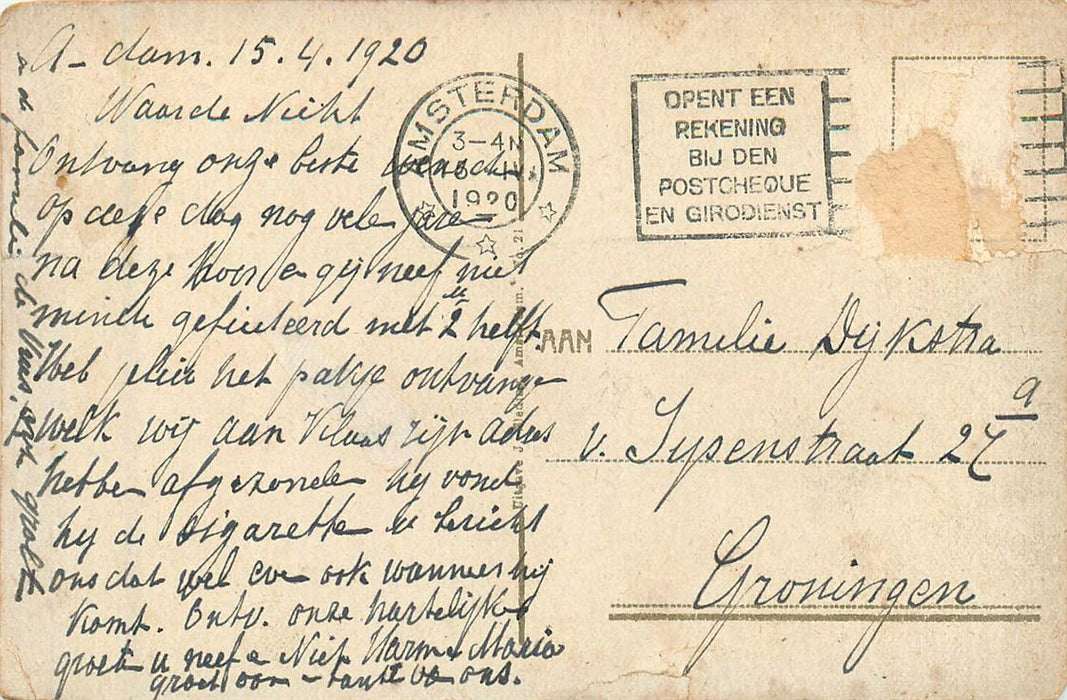 A-dam. 15.4.1920
Waarde Nicht
Ontvang onze beste wensch
op deze dag nog vele jare
na deze Koos en gij neef niet
minde gefeliteerd met u 2e helft.
Wel jelui het pakje ontvange
welk wij aan Klaas zijn adres
hebbe afgezonde hij vond
hij de sigarette u bericht
ons dat wel eve ook wanneer hij
komt. Ontv. onze hartelijke
groete u neef en Nicht Harm en Maria
groet oom en tante van ons.
a d familie de Vries, ook groet
AMSTERDAM
3-4N
1920
OPENT EEN
REKENING
BIJ DEN
POSTCHEQUE
EN GIRODIENST
AAN Familie Dijkstra
v. Sijsenstraat 27 a
Groningen